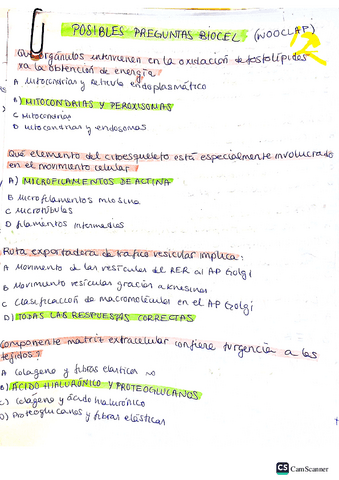 POSIBLES PREGUNTAS BIOCEL (WOOCLAP)
Qué orgánulos intervienen en la oxidación de fosfolípidos
para la obtención de energía
A Mitocondrias y retículo endoplasmático
B) MITOCONDRIAS Y PEROXISOMAS
C Mitocondrias
D Mitocondrias y endosomas
Qué elemento del citoesqueleto está especialmente involucrado
en el movimiento celular
A) MICROFILAMENTOS DE ACTINA
B Microfilamentos miosina
C Microtúbulos
D filamentos intermedios
Ruta exportadora de tráfico vesicular implica:
A Movimiento de las vesículas del RER al AP Golgi
B Movimiento vesículas gracias a kinesinas
C Clasificación de macromoléculas en el AP Golgi
D) TODAS LAS RESPUESTAS CORRECTAS
Componente matriz extracelular confiere turgencia a los
tejidos?
A Colágeno y fibras elásticas no
B) ÁCIDO HIALURÓNICO Y PROTEOGLUCANOS
C) Colágeno y ácido hialurónico
D) Proteoglucanos y fibras elásticas
CS CamScanner